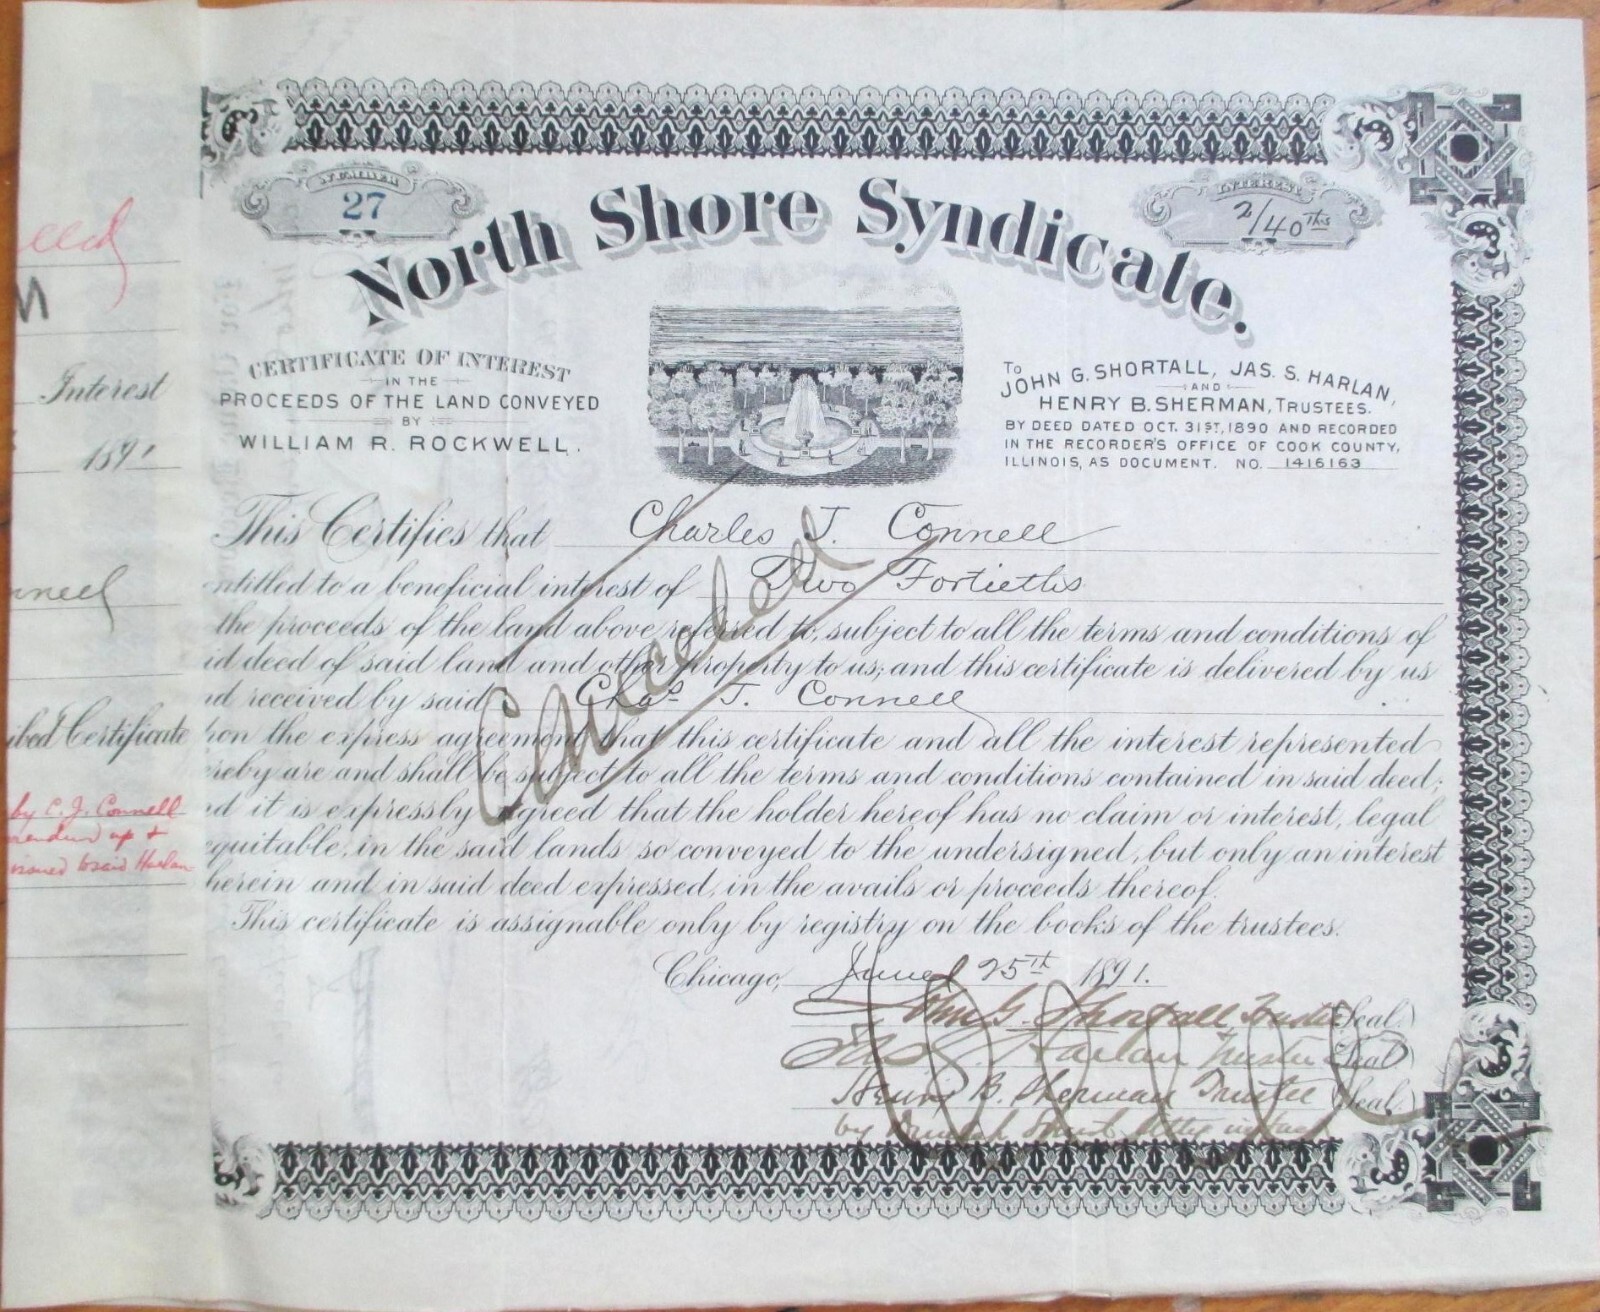 NUMBER
27
INTEREST
2/40 ths
North Shore Syndicate.
CERTIFICATE OF INTEREST
IN THE
PROCEEDS OF THE LAND CONVEYED
BY
WILLIAM R. ROCKWELL.
To
JOHN G. SHORTALL, JAS. S. HARLAN,
AND
HENRY B. SHERMAN, TRUSTEES.
BY DEED DATED OCT. 31ST, 1890 AND RECORDED
IN THE RECORDER'S OFFICE OF COOK COUNTY,
ILLINOIS, AS DOCUMENT. NO. 1416163
This Certifies that Charles J. Connell
ntitled to a beneficial interest of Two Fortieths
the proceeds of the land above referred to, subject to all the terms and conditions of
id deed of said land and other property to us; and this certificate is delivered by us
nd received by said Chas. J. Connell
pon the express agreement that this certificate and all the interest represented
ereby are and shall be subject to all the terms and conditions contained in said deed;
nd it is expressly agreed that the holder hereof has no claim or interest, legal
equitable, in the said lands so conveyed to the undersigned, but only an interest
herein and in said deed expressed, in the avails or proceeds thereof.
This certificate is assignable only by registry on the books of the trustees.
Chicago, June 25th 1891.
John G. Shortall Trustee (Seal)
Jas. S. Harlan Trustee (Seal)
Henry B. Sherman Trustee (Seal)
by
Cancelled
elled
Interest
1891
nnell
ibed Certificate
by C. J. Connell
rendered up +
issued to said Harlan